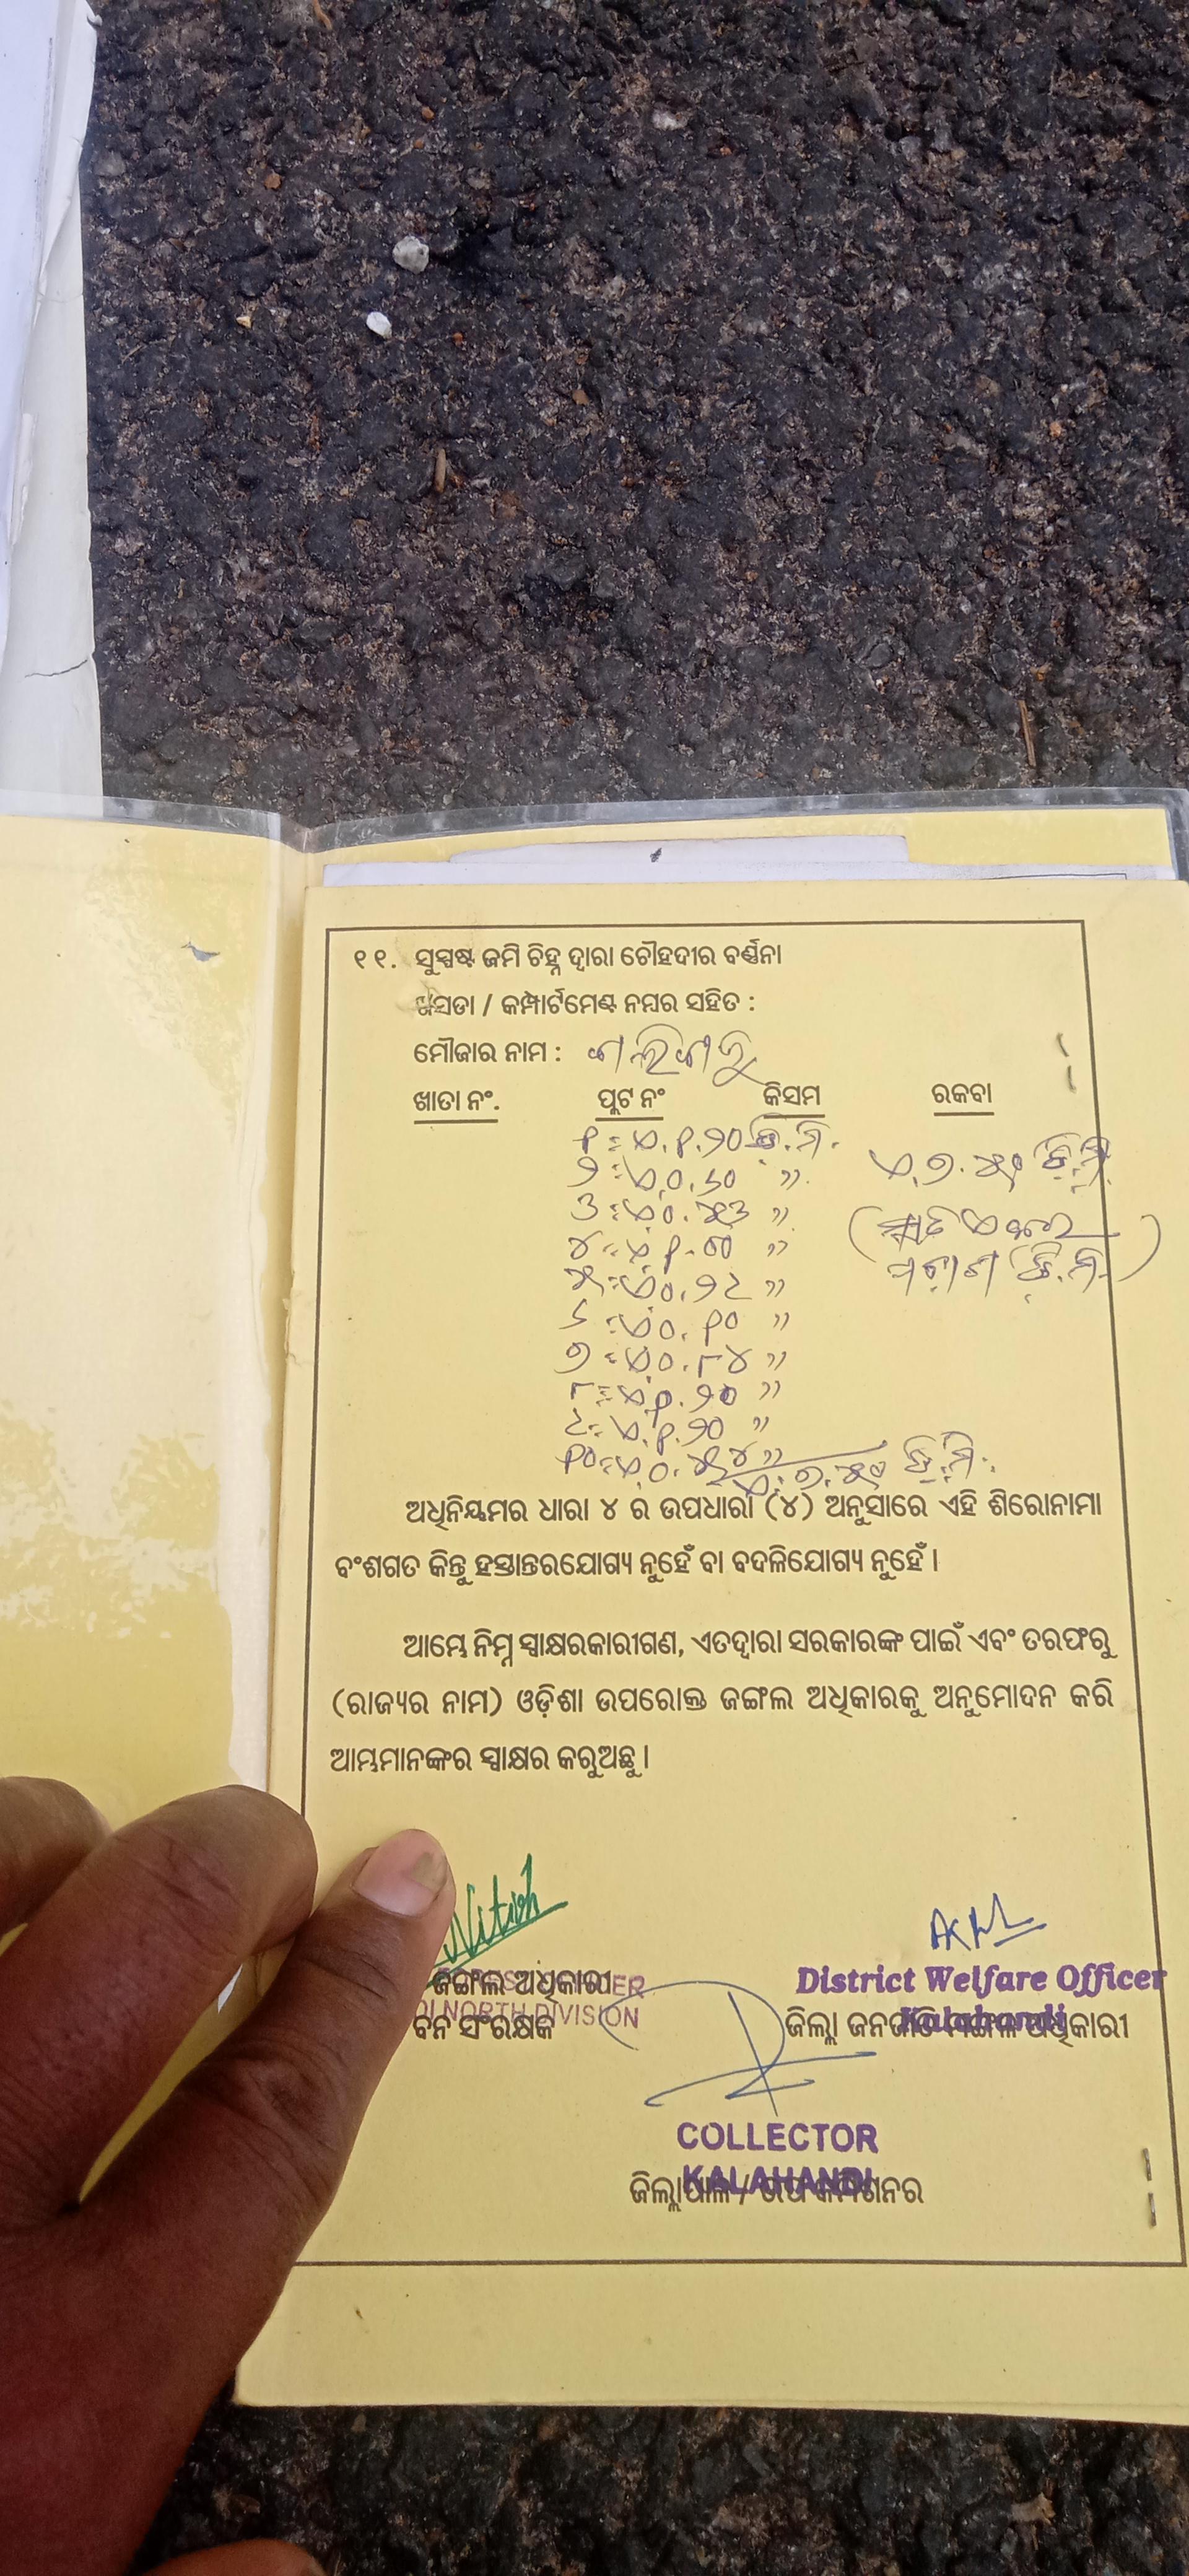 ୧୧. ସୁସ୍ପଷ୍ଟ ଜମି ଚିହ୍ନ ଦ୍ୱାରା ଚୌହଦୀର ବର୍ଣ୍ଣନା
ଖସଡା / କମ୍ପାର୍ଟମେଣ୍ଟ ନମ୍ବର ସହିତ :
ମୌଜାର ନାମ :
ଖାତା ନଂ. ପ୍ଲଟ ନଂ କିସମ ରକବା
୧ = ଏ.୧.୨୦ ଡି.ମି.
୨ = ଏ.୦.୬୦ "
୩ = ଏ.୦.୫୩ "
ଏ.୭.୫୦ ଡି.ମି.
୪ = ଏ.୧.୦୦ "
(ସାତ ଏକର
ପଚାଶ ଡି.ମି.)
୫ = ଏ.୦.୨୯ "
୬ = ଏ.୦.୧୦ "
୭ = ଏ.୦.୮୪ "
୮ = ଏ.୧.୨୦ "
୯ = ଏ.୧.୨୦ "
୧୦ = ଏ.୦.୫୪ "
ଏ.୭.୫୦ ଡି.ମି.
ଅଧିନିୟମର ଧାରା ୪ ର ଉପଧାରା (୪) ଅନୁସାରେ ଏହି ଶିରୋନାମା
ବଂଶଗତ କିନ୍ତୁ ହସ୍ତାନ୍ତରଯୋଗ୍ୟ ନୁହେଁ ବା ବଦଳିଯୋଗ୍ୟ ନୁହେଁ ।
ଆମ୍ଭେ ନିମ୍ନ ସ୍ୱାକ୍ଷରକାରୀଗଣ, ଏତଦ୍ଦ୍ୱାରା ସରକାରଙ୍କ ପାଇଁ ଏବଂ ତରଫରୁ
(ରାଜ୍ୟର ନାମ) ଓଡ଼ିଶା ଉପରୋକ୍ତ ଜଙ୍ଗଲ ଅଧିକାରକୁ ଅନୁମୋଦନ କରି
ଆମ୍ଭମାନଙ୍କର ସ୍ୱାକ୍ଷର କରୁଅଛୁ ।
Nitish
ଜଙ୍ଗଲ ଅଧିକାରୀ
NORTH DIVISION
ବନ ସଂରକ୍ଷକ
District Welfare Officer
Kalahandi
ଜିଲ୍ଲା ଜନଜାତି ମଙ୍ଗଳ ଅଧିକାରୀ
COLLECTOR
KALAHANDI
ଜିଲ୍ଲାପାଳ / ଉପ କମିଶନର